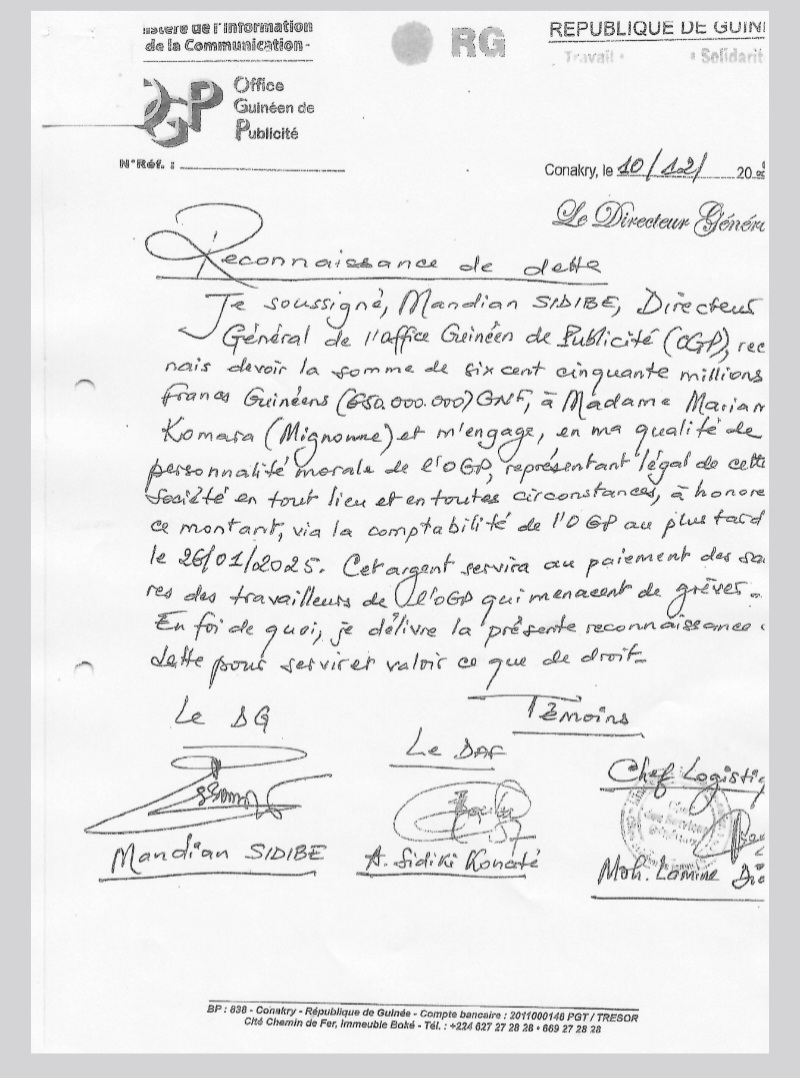 istère de l'Information
de la Communication -
RG
REPUBLIQUE DE GUIN
Travail • • Solidarit
OGP
Office
Guinéen de
Publicité
N°Réf. :
Conakry, le 10/12/ 20
Le Directeur Généra
Reconnaissance de dette
Je soussigné, Mandian SIDIBE, Directeur
Général de l'Office Guinéen de Publicité (OGP), rec
nais devoir la somme de six cent cinquante millions
francs Guinéens (650.000.000) GNF, à Madame Mariam
Komara (Mignonne) et m'engage, en ma qualité de
personnalité morale de l'OGP, représentant légal de cette
Société en tout lieu et en toutes circonstances, à honore
ce montant, via la comptabilité de l'OGP au plus tard
le 26/01/2025. Cet argent servira au paiement des sa
res des travailleurs de l'OGP qui menacent de grèver.
En foi de quoi, je délivre la présente reconnaissance
dette pour servir et valoir ce que de droit.
Le DG
Témoins
Le DAF
Chef Logisti
Mandian SIDIBE
A. Sidiki Konaté
Moh. Lamine
BP : 838 - Conakry - République de Guinée - Compte bancaire : 2011000146 PGT / TRESOR
Cité Chemin de Fer, Immeuble Boké - Tél. : +224 627 27 28 28 • 669 27 28 28